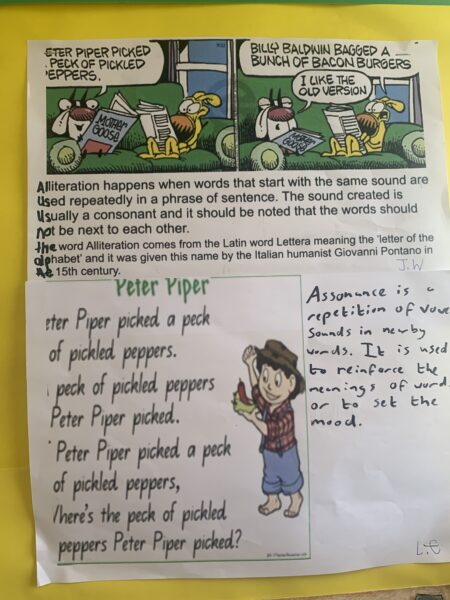 ETER PIPER PICKED
PECK OF PICKLED
EPPERS.
MOTHER
GOOSE
BILLY BALDWIN BAGGED A
BUNCH OF BACON BURGERS
I LIKE THE
OLD VERSION
MOTHER
GOOSE
Alliteration happens when words that start with the same sound are
used repeatedly in a phrase of sentence. The sound created is
usually a consonant and it should be noted that the words should
not be next to each other.
the word Alliteration comes from the Latin word Lettera meaning the 'letter of the
alphabet' and it was given this name by the Italian humanist Giovanni Pontano in
the 15th century.
J.W
Peter Piper
eter Piper picked a peck
of pickled peppers.
peck of pickled peppers
Peter Piper picked.
Peter Piper picked a peck
of pickled peppers,
here's the peck of pickled
peppers Peter Piper picked?
Assonance is a
repetition of vowe
sounds in nearby
words. It is used
to reinforce the
meanings of word
or to set the
mood.